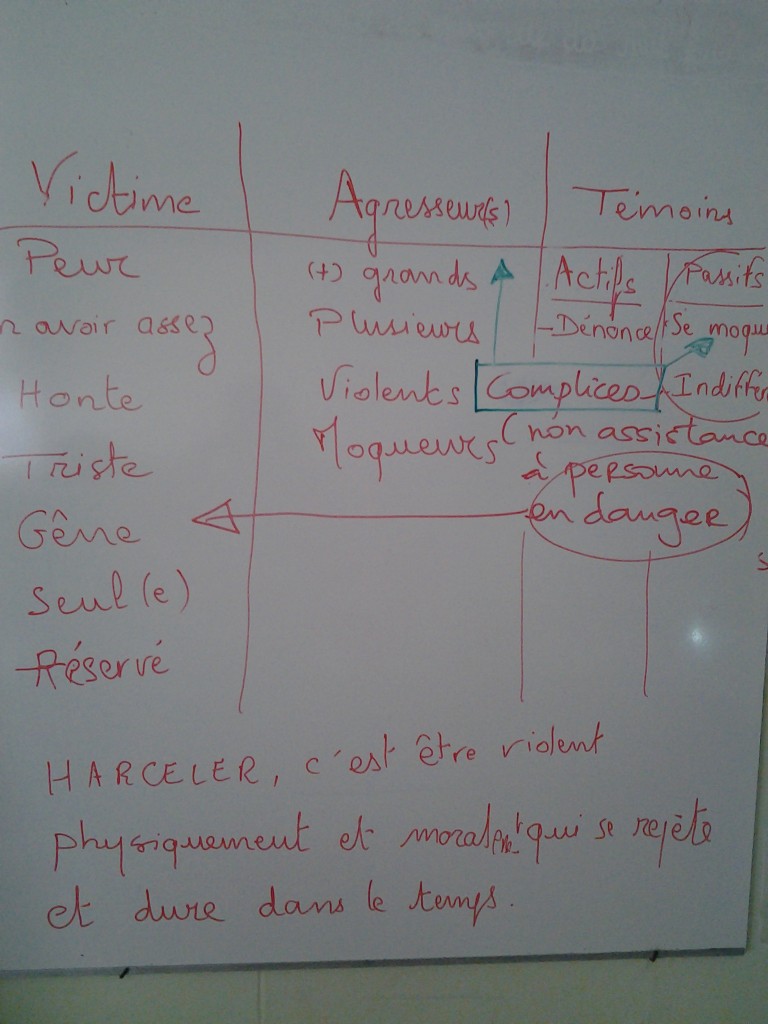 Victime
Agresseur(s)
Témoins
Peur
n avoir assez
Honte
Triste
Gêne
Seul(e)
Réservé
(+) grands
Plusieurs
Violents
Moqueurs
Actifs
- Dénonce
Passifs
Se moqu
Complices
Indiffér
(non assistance
à personne
en danger
HARCELER, c'est être violent
physiquement et moralemt qui se repète
et dure dans le temps.